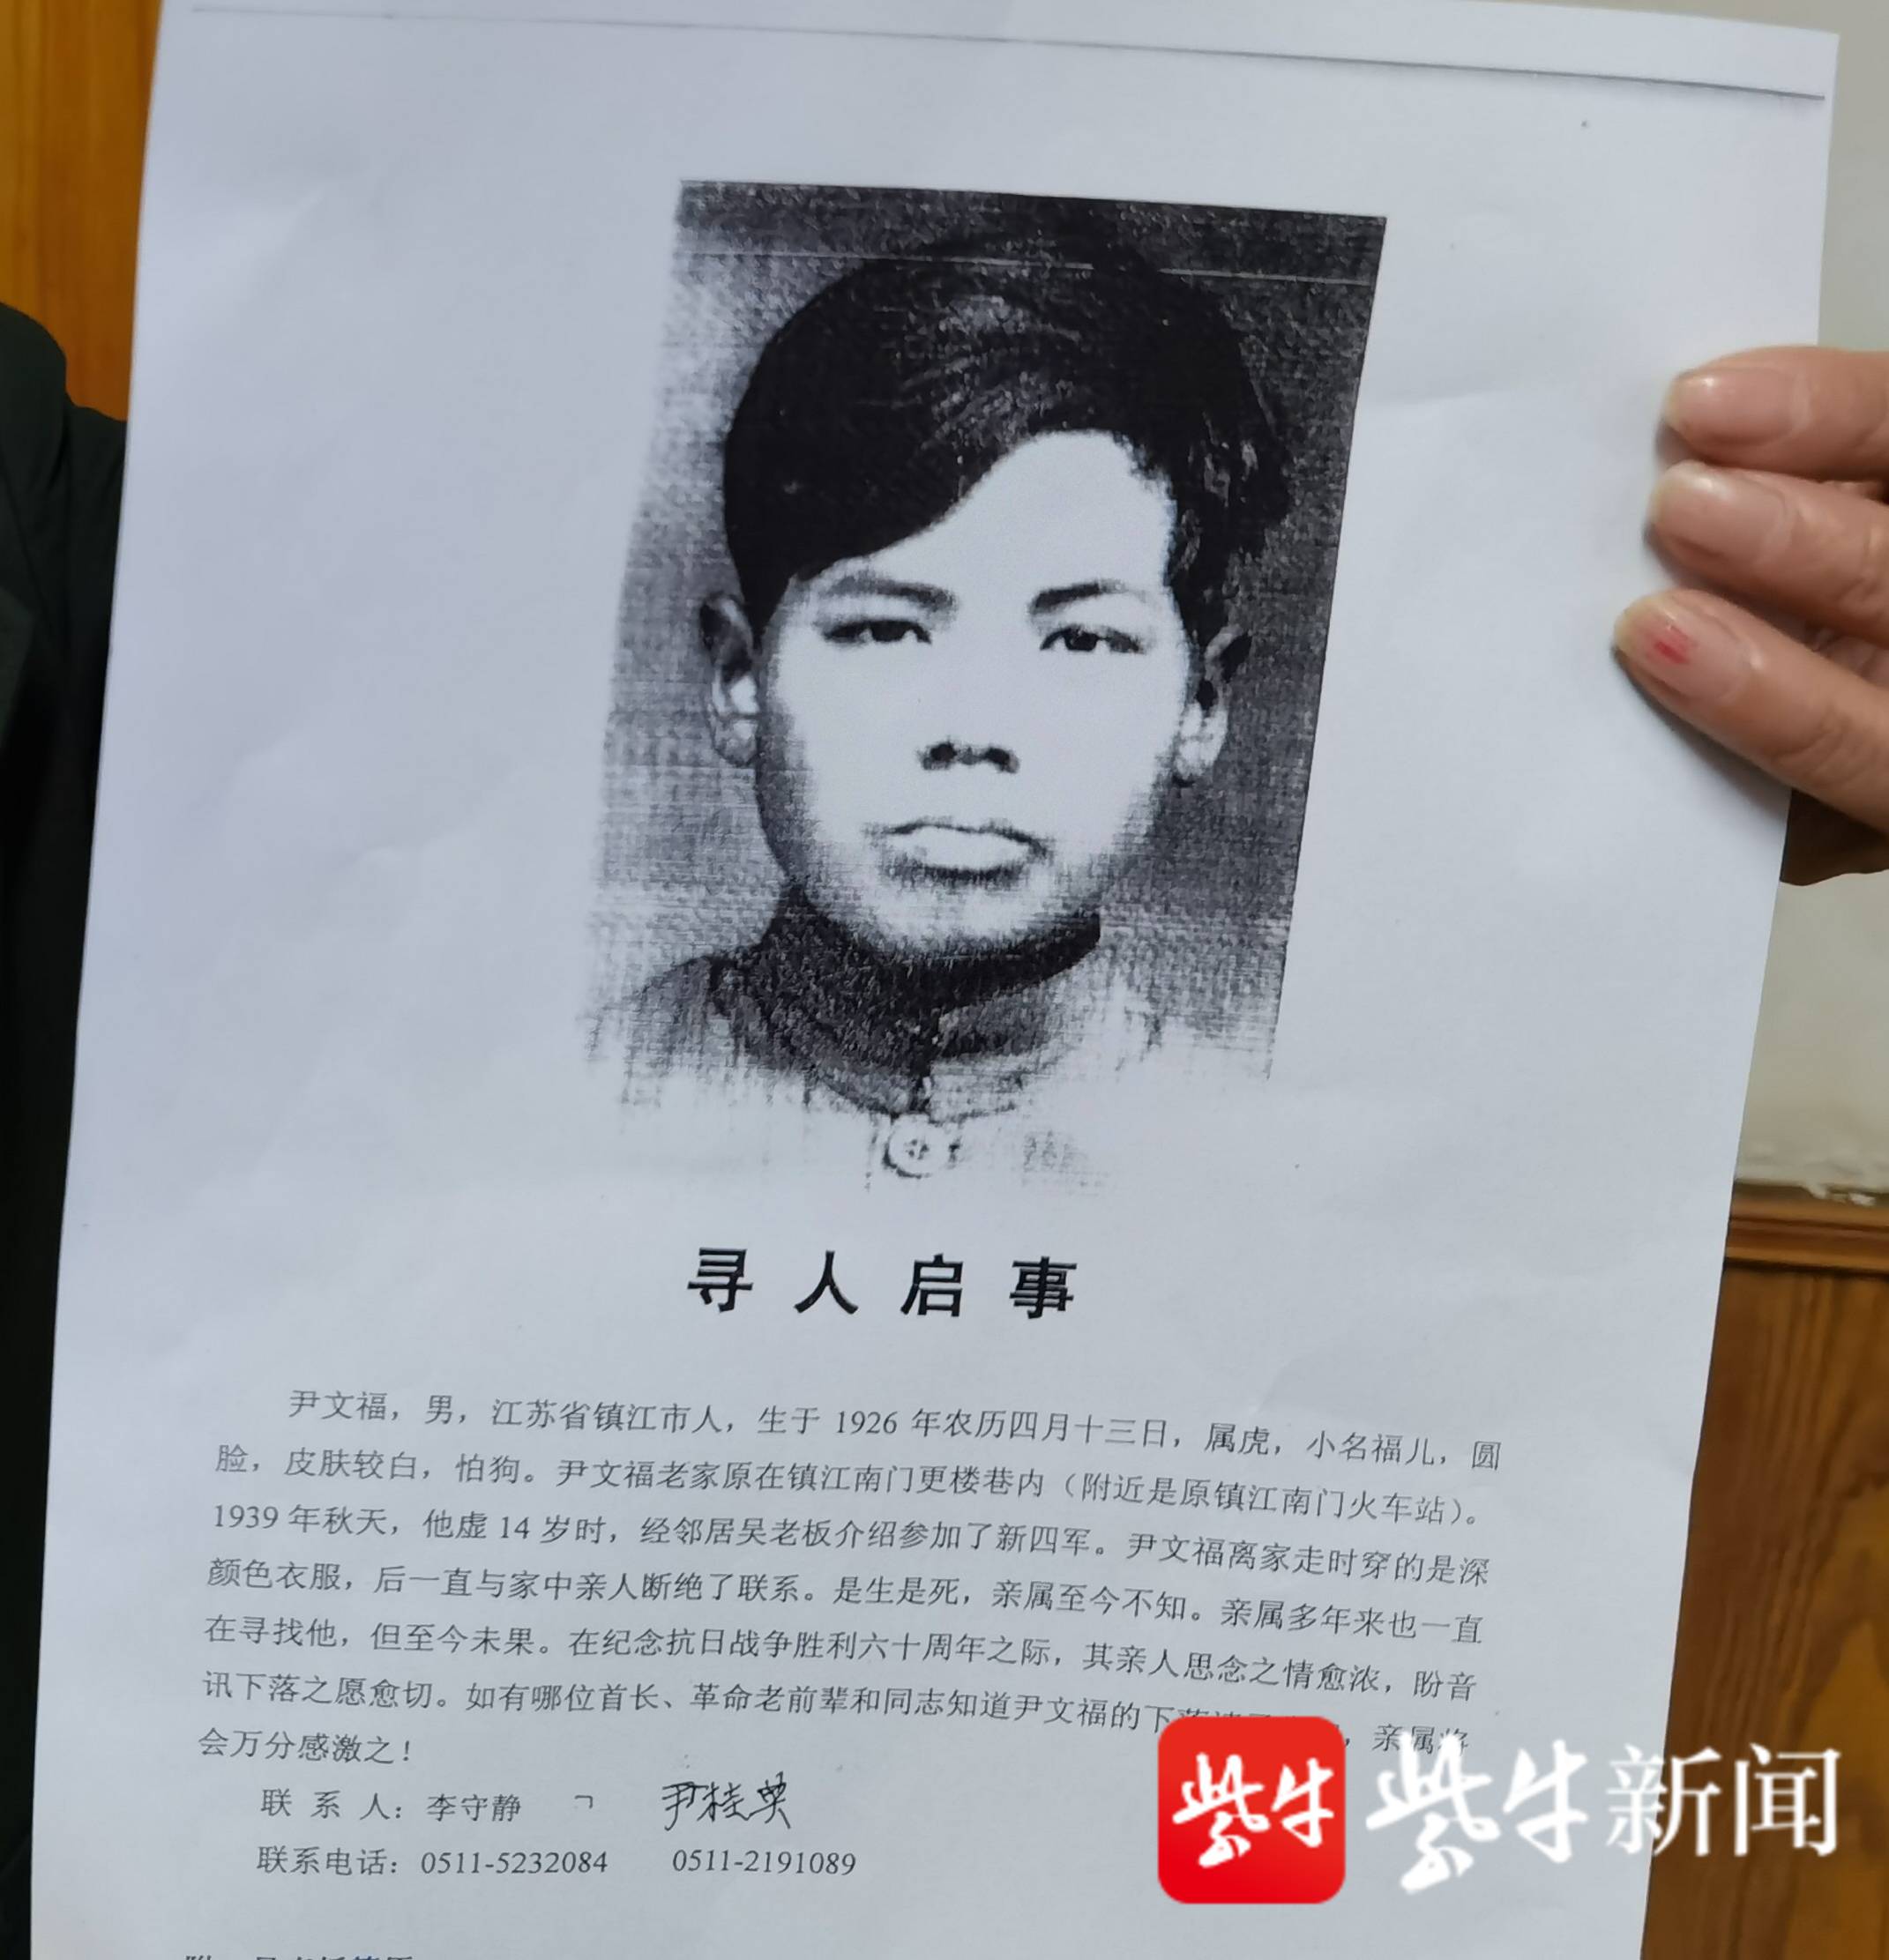 寻人启事
尹文福，男，江苏省镇江市人，生于 1926 年农历四月十三日，属虎，小名福儿，圆
脸，皮肤较白，怕狗。尹文福老家原在镇江南门更楼巷内（附近是原镇江南门火车站）。
1939 年秋天，他虚 14 岁时，经邻居吴老板介绍参加了新四军。尹文福离家走时穿的是深
颜色衣服，后一直与家中亲人断绝了联系。是生是死，亲属至今不知。亲属多年来也一直
在寻找他，但至今未果。在纪念抗日战争胜利六十周年之际，其亲人思念之情愈浓，盼音
讯下落之愿愈切。如有哪位首长、革命老前辈和同志知道尹文福的下落，亲属将
会万分感激之！
联 系 人：李守静 尹桂英
联系电话：0511-5232084 0511-2191089
紫牛 紫牛新闻